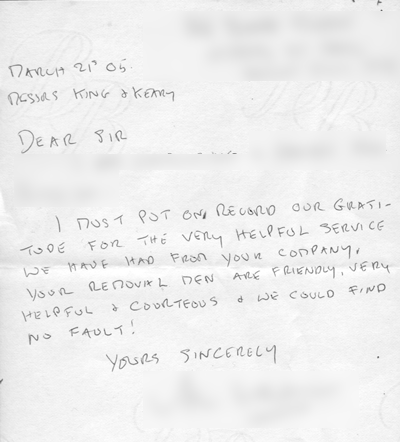 MARCH 21st 05.
MESSRS KING & KEARY
DEAR SIR
I MUST PUT ON RECORD OUR GRATI-
TUDE FOR THE VERY HELPFUL SERVICE
WE HAVE HAD FROM YOUR COMPANY.
YOUR REMOVAL MEN ARE FRIENDLY, VERY
HELPFUL & COURTEOUS & WE COULD FIND
NO FAULT!
YOURS SINCERELY